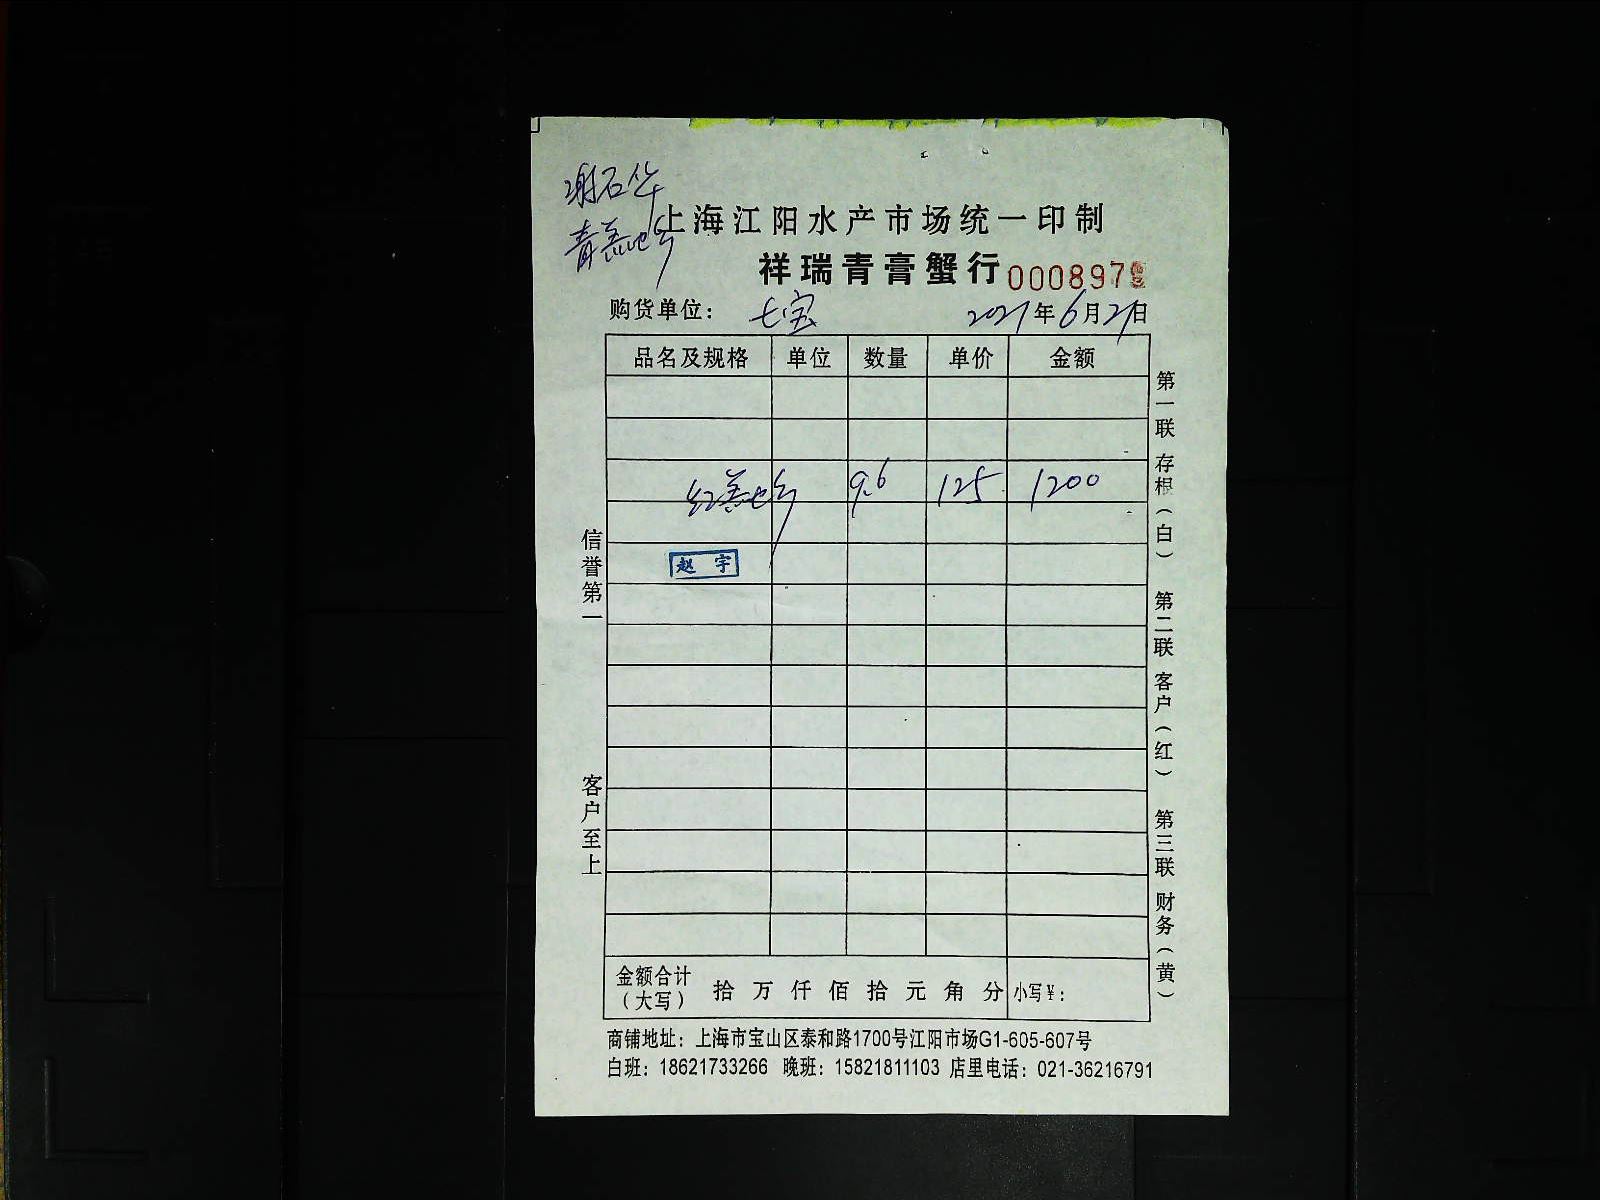 谢石华
青羔也乡
上海江阳水产市场统一印制
祥瑞青膏蟹行 000897
购货单位： 七宝 2021年6月21日
品名及规格 单位 数量 单价 金额
红羔也乡 9.6 125 1200
赵宇
金额合计（大写） 拾万仟佰拾元角分 小写¥：
商铺地址：上海市宝山区泰和路1700号江阳市场G1-605-607号
白班：18621733266 晚班：15821811103 店里电话：021-36216791
信誉第一
客户至上
第一联 存根（白）
第二联 客户（红）
第三联 财务（黄）